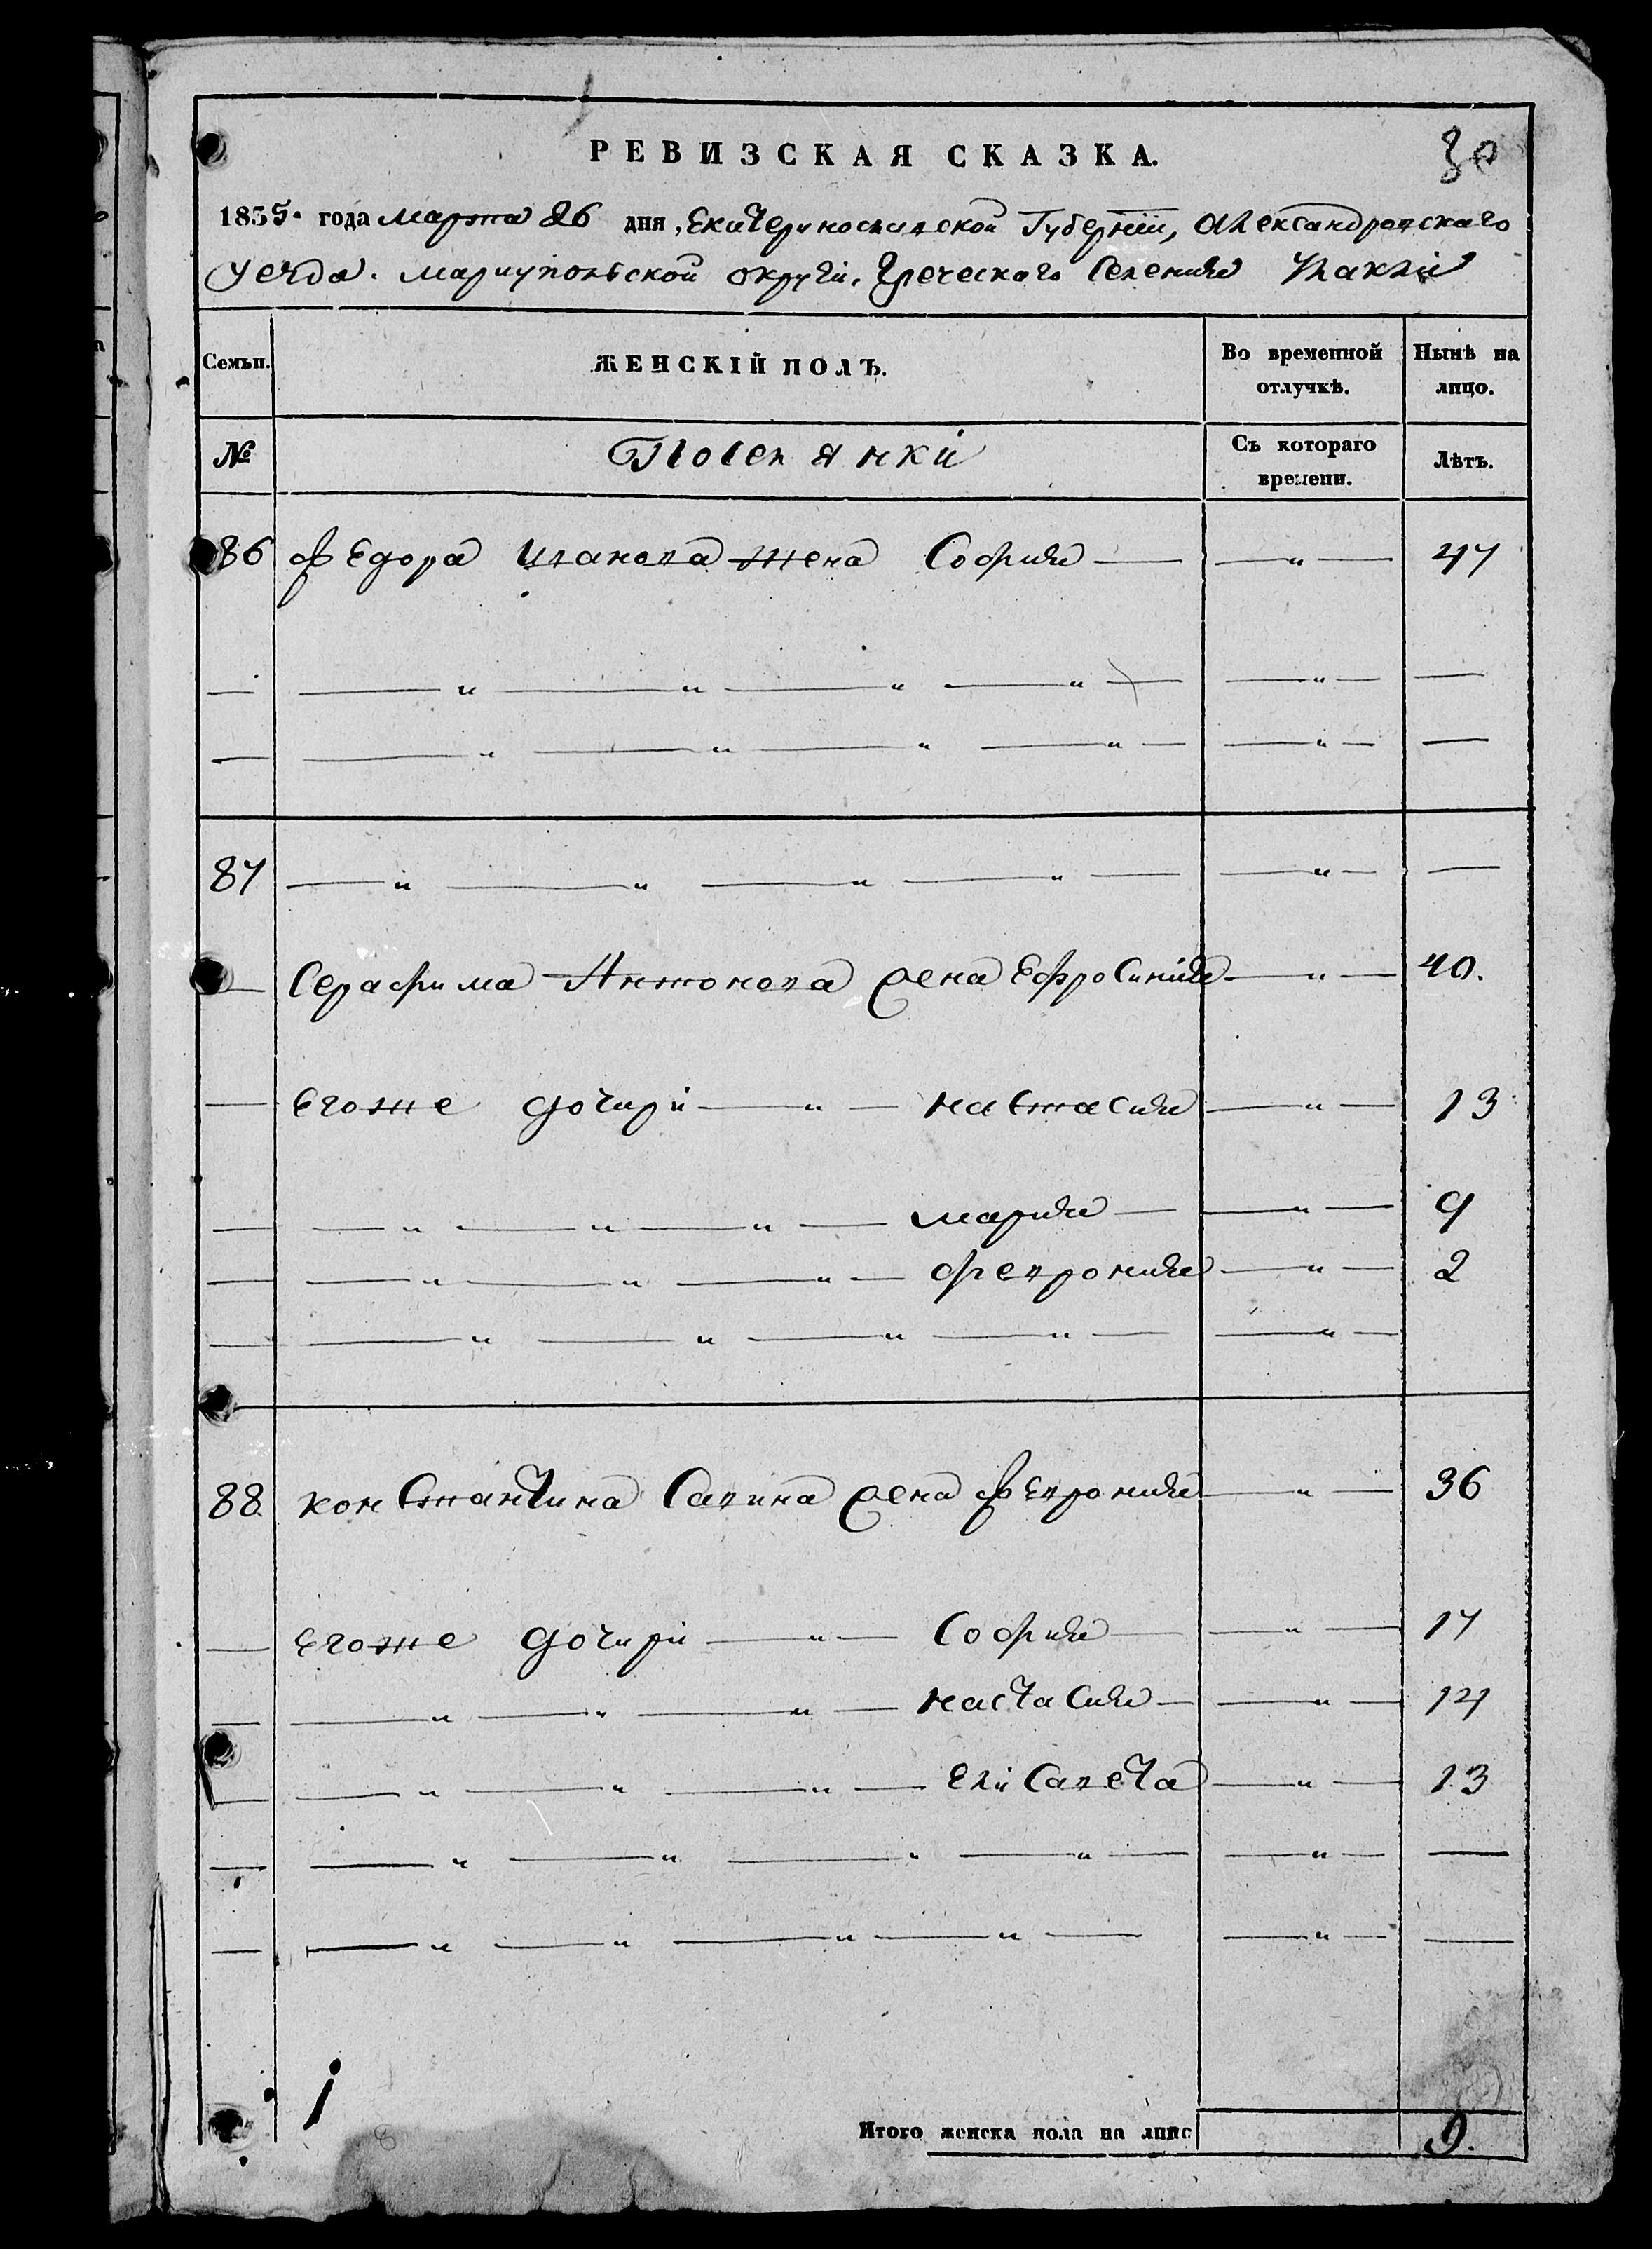 РЕВИЗСКАЯ СКАЗКА.
30
1835. года марта 26 дня, Екатеринославской Губерніи, Александровскаго
уезда. мариупольской округи, Греческаго Селения
Семьи. ЖЕНСКІЙ ПОЛЪ. Во временной отлучкѣ. Нынѣ на лицо.
№ Поселянкі Съ котораго времени. Лѣтъ.
86 федора Иванова жена София — „ — 47
— — „ — „ — „ — „ — — „ — —
— — „ — „ — „ — „ — — „ — —
87 — „ — „ — „ — „ — — „ — —
— Серафима Антонова жена Ефросиния — „ — 40.
— Егоже дочирі — „ — настасия — „ — 13
— — „ — „ — „ — мария — — „ — 9
— — „ — „ — „ — феврония — „ — 2
— — „ — „ — „ — „ — — „ —
88. константина Савина жена феврония — „ — 36
— егоже дочирі — „ — София — — „ — 17
— — „ — „ — „ — настасия — — „ — 14
— — „ — „ — „ — Елісавета — „ — 13
— — „ — „ — „ — „ — — „ — —
— — „ — „ — „ — „ — — „ — —
Итого женска пола на лицо 9.